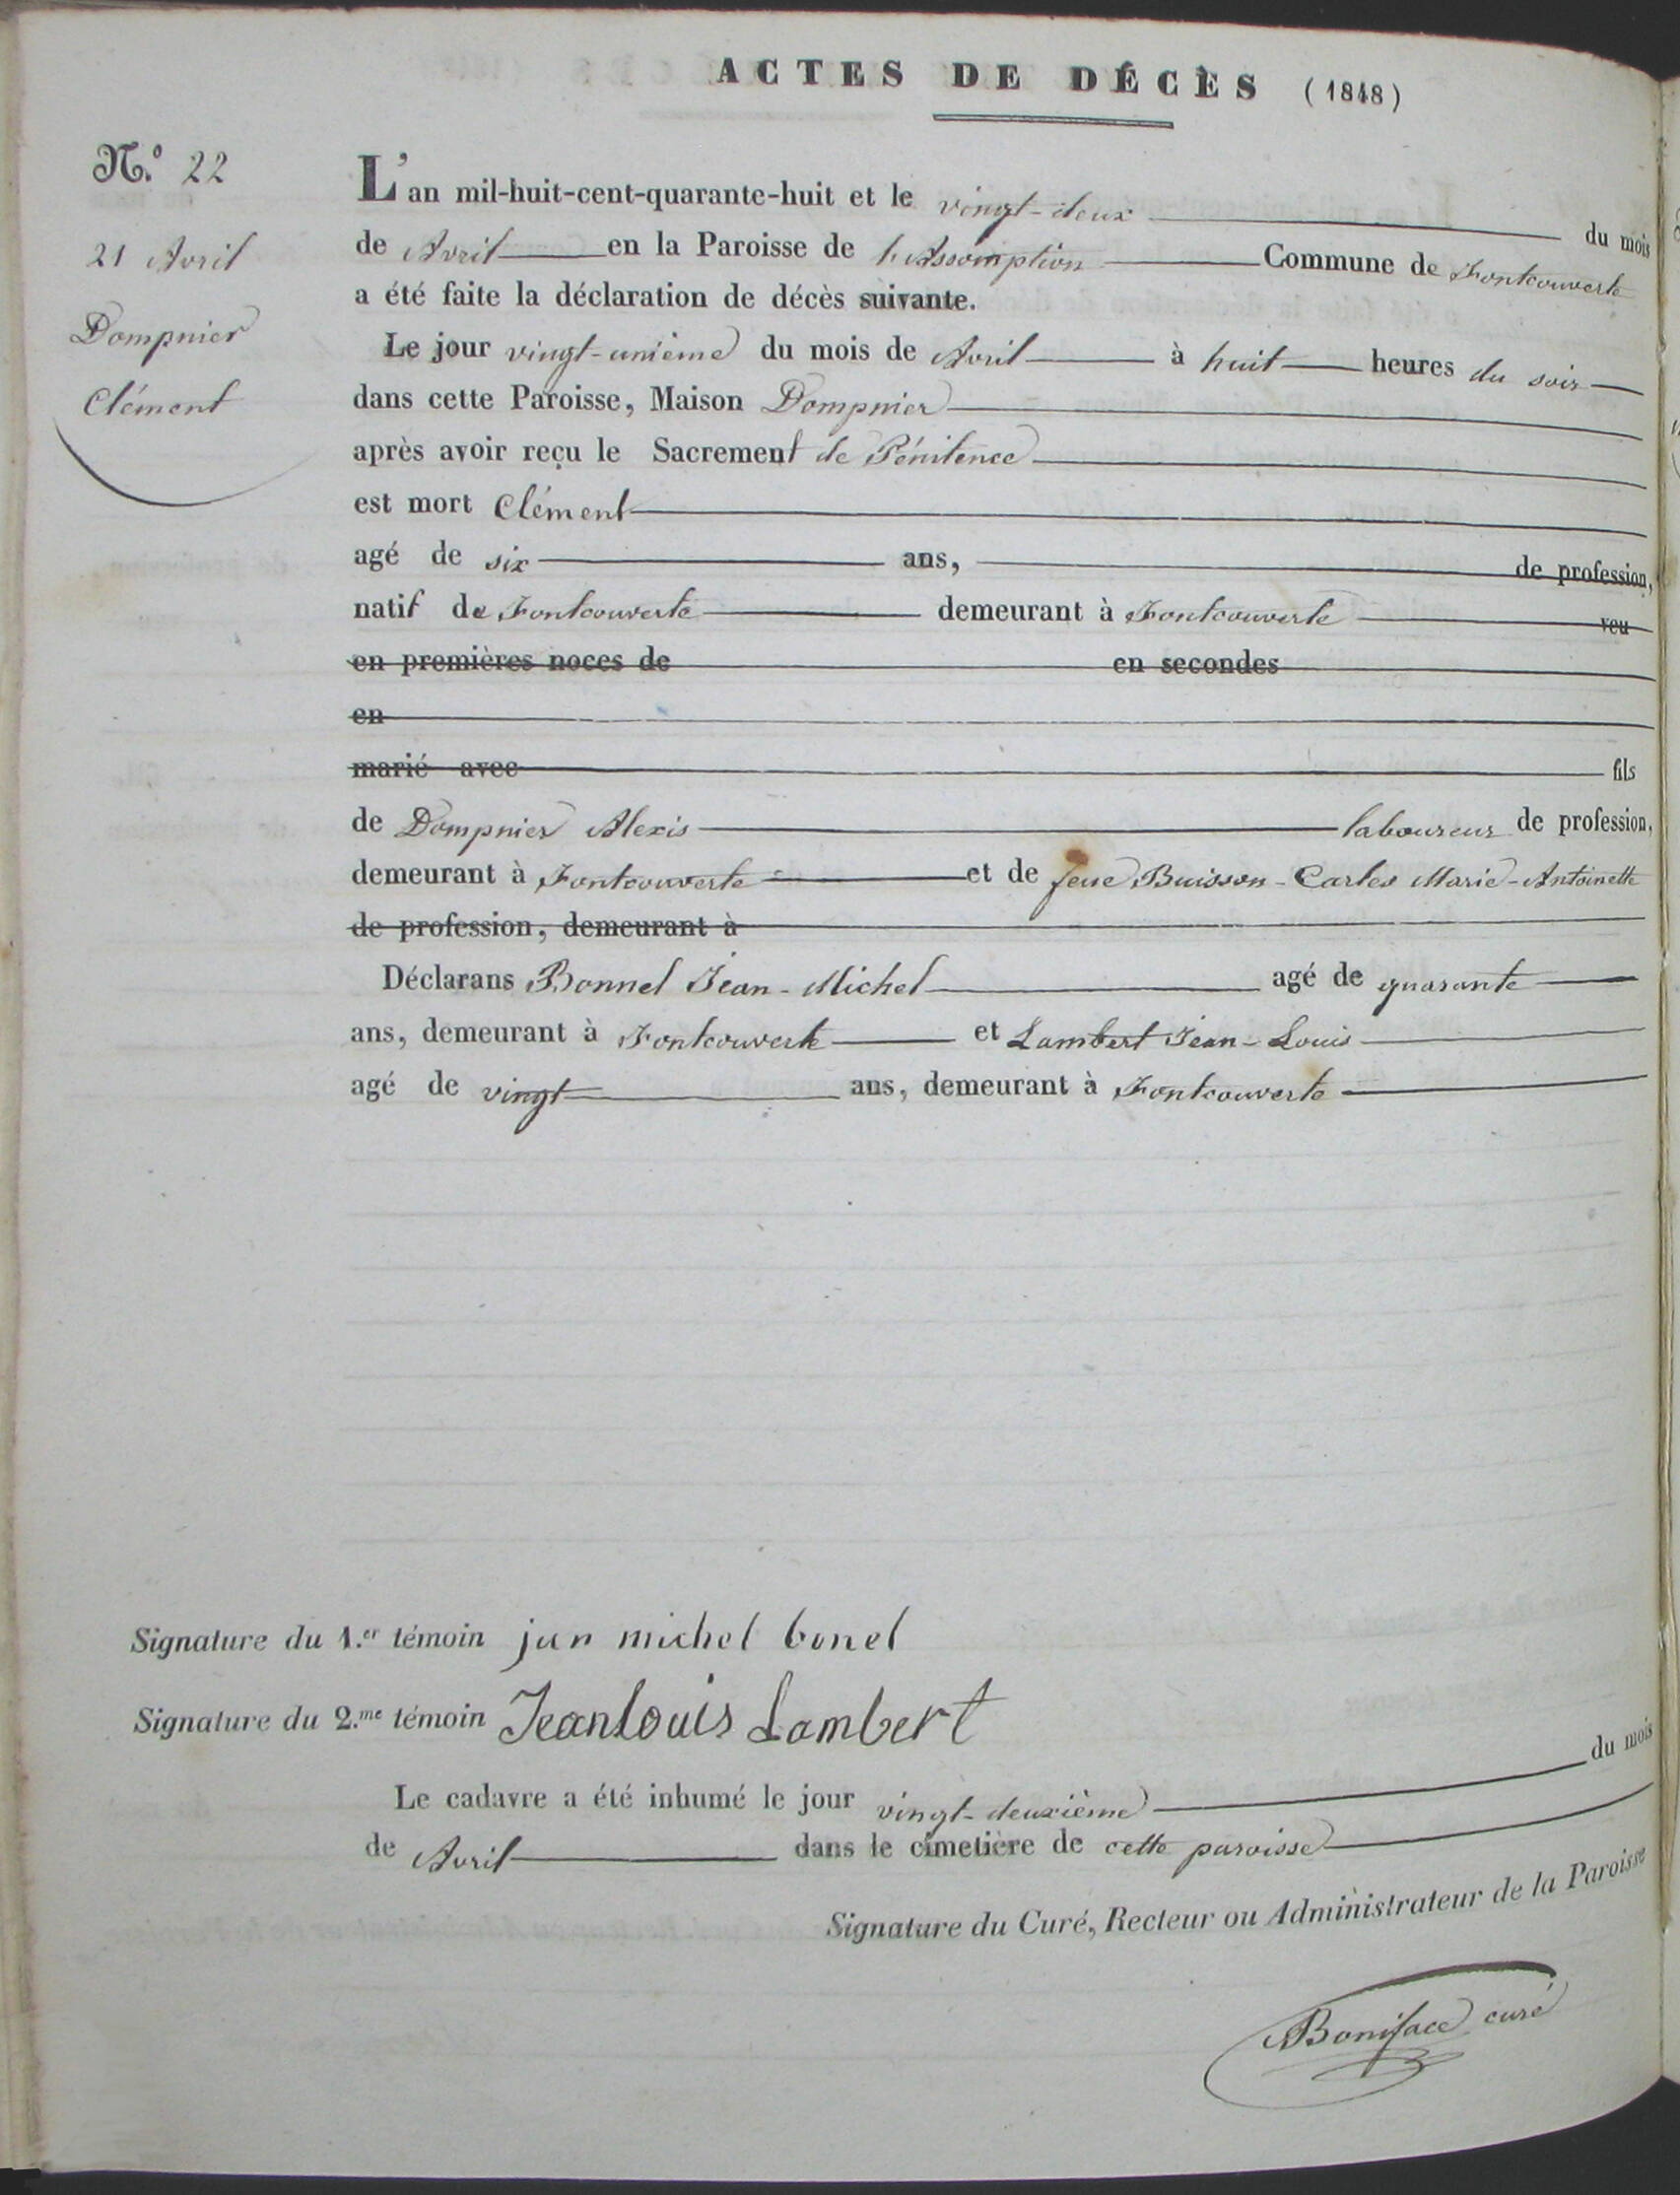 ACTES DE DÉCÈS (1848)
N.º 22
21 Avril
Dompnier
Clément
L'an mil-huit-cent-quarante-huit et le vingt-deux du mois
de Avril en la Paroisse de l'Assomption Commune de Fontcouverte
a été faite la déclaration de décès suivante.
Le jour vingt-unième du mois de Avril à huit heures du soir
dans cette Paroisse, Maison Dompnier
après avoir reçu le Sacrement de Pénitence
est mort Clément
agé de six ans, de profession,
natif de Fontcouverte demeurant à Fontcouverte veu
en premières noces de en secondes
en
marié avec fils
de Dompnier Alexis laboureur de profession,
demeurant à Fontcouverte et de feue Buisson-Carles Marie-Antoinette
de profession, demeurant à
Déclarans Bonnel Jean-Michel agé de quarante
ans, demeurant à Fontcouverte et Lambert Jean-Louis
agé de vingt ans, demeurant à Fontcouverte
Signature du 1.er témoin jun michel bonel
Signature du 2.me témoin Jeanlouis Lambert
Le cadavre a été inhumé le jour vingt-deuxième du mois
de Avril dans le cimetière de cette paroisse
Signature du Curé, Recteur ou Administrateur de la Paroisse
Boniface curé